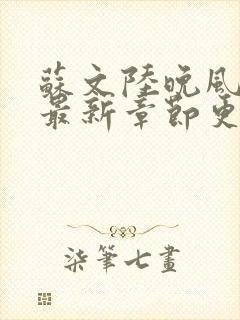 蘇文陸晚風
最新章節更
柒筆七畫